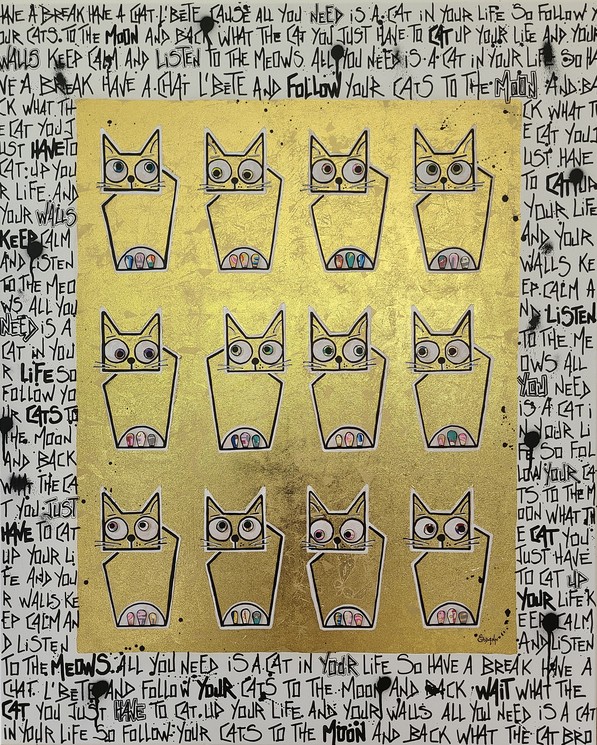 HAVE A BREAK HAVE A CHAT L'BETE CAUSE ALL YOU NEED IS A CAT IN YOUR LIFE SO FOLLOW Y
OUR CATS. TO THE MOON AND BACK WHAT THE CAT YOU JUST HAVE TO CAT UP YOUR LIFE AND YOUR
WALLS KEEP CALM AND LISTEN TO THE MEOWS. ALL YOU NEED IS A CAT IN YOUR LIFE SO HA
VE A BREAK HAVE A CHAT L'BETE AND FOLLOW YOUR CATS TO THE MOON AND BA
CK WHAT TH
E CAT YOU J
UST HAVE TO
CAT UP YOU
R LIFE AND
YOUR WALLS
KEEP CALM
AND LISTEN
TO THE MEO
WS ALL YOU
NEED IS A
CAT IN YOU
R LIFE SO
FOLLOW YO
UR CATS TO
THE MOON
AND BACK
WHAT THE CA
T YOU JUST
HAVE TO CAT
UP YOUR LI
FE AND YOU
R WALLS KE
EP CALM AN
D LISTEN
CK WHAT TH
E CAT YOU J
UST HAVE
TO CAT UP
YOUR LIFE
AND YOUR
WALLS KE
EP CALM A
ND LISTEN
TO THE ME
OWS ALL
YOU NEED
IS A CAT I
N YOUR LI
FE SO FOL
LOW YOUR CA
TS TO THE M
OON WHAT TH
E CAT YOU
JUST HAVE
TO CAT UP
YOUR LIFE K
EEP CALM
AND LISTEN
TO THE MEOWS. ALL YOU NEED IS A CAT IN YOUR LIFE SO HAVE A BREAK HAVE A
CHAT L'BETE AND FOLLOW YOUR CATS TO THE MOON AND BACK WAIT WHAT THE
CAT YOU JUST HAVE TO CAT UP YOUR LIFE AND YOUR WALLS ALL YOU NEED IS A CAT
IN YOUR LIFE SO FOLLOW YOUR CATS TO THE MOON AND BACK WHAT THE CAT BRO